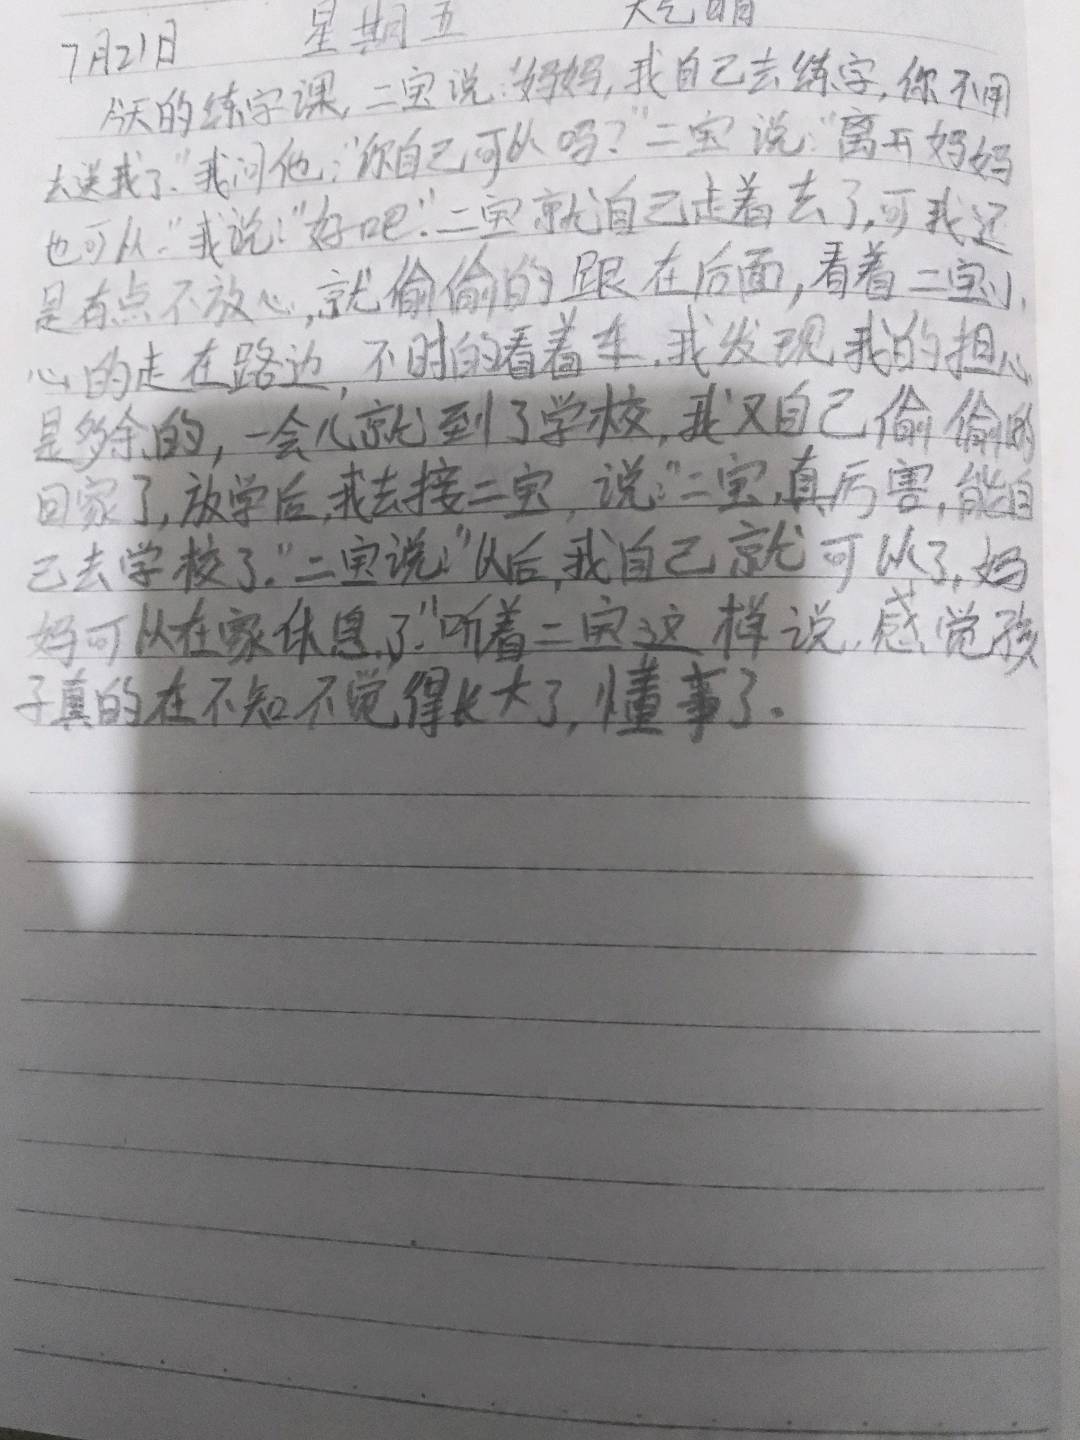 7月21日 星期五 天气晴
今天的练字课,二宝说:"妈妈,我自己去练字,你不用
去送我了."我问他:"你自己可以吗?"二宝说:"离开妈妈
也可以."我说:"好吧."二宝就自己走着去了,可我还
是有点不放心,就偷偷的跟在后面,看着二宝小
心的走在路边,不时的看着车.我发现我的担心
是多余的,一会儿就到了学校,我又自己偷偷的
回家了,放学后,我去接二宝,说:"二宝,真厉害,能自
己去学校了."二宝说:"以后,我自己就可以了,妈
妈可以在家休息了."听着二宝这样说,感觉孩
子真的在不知不觉得长大了,懂事了.